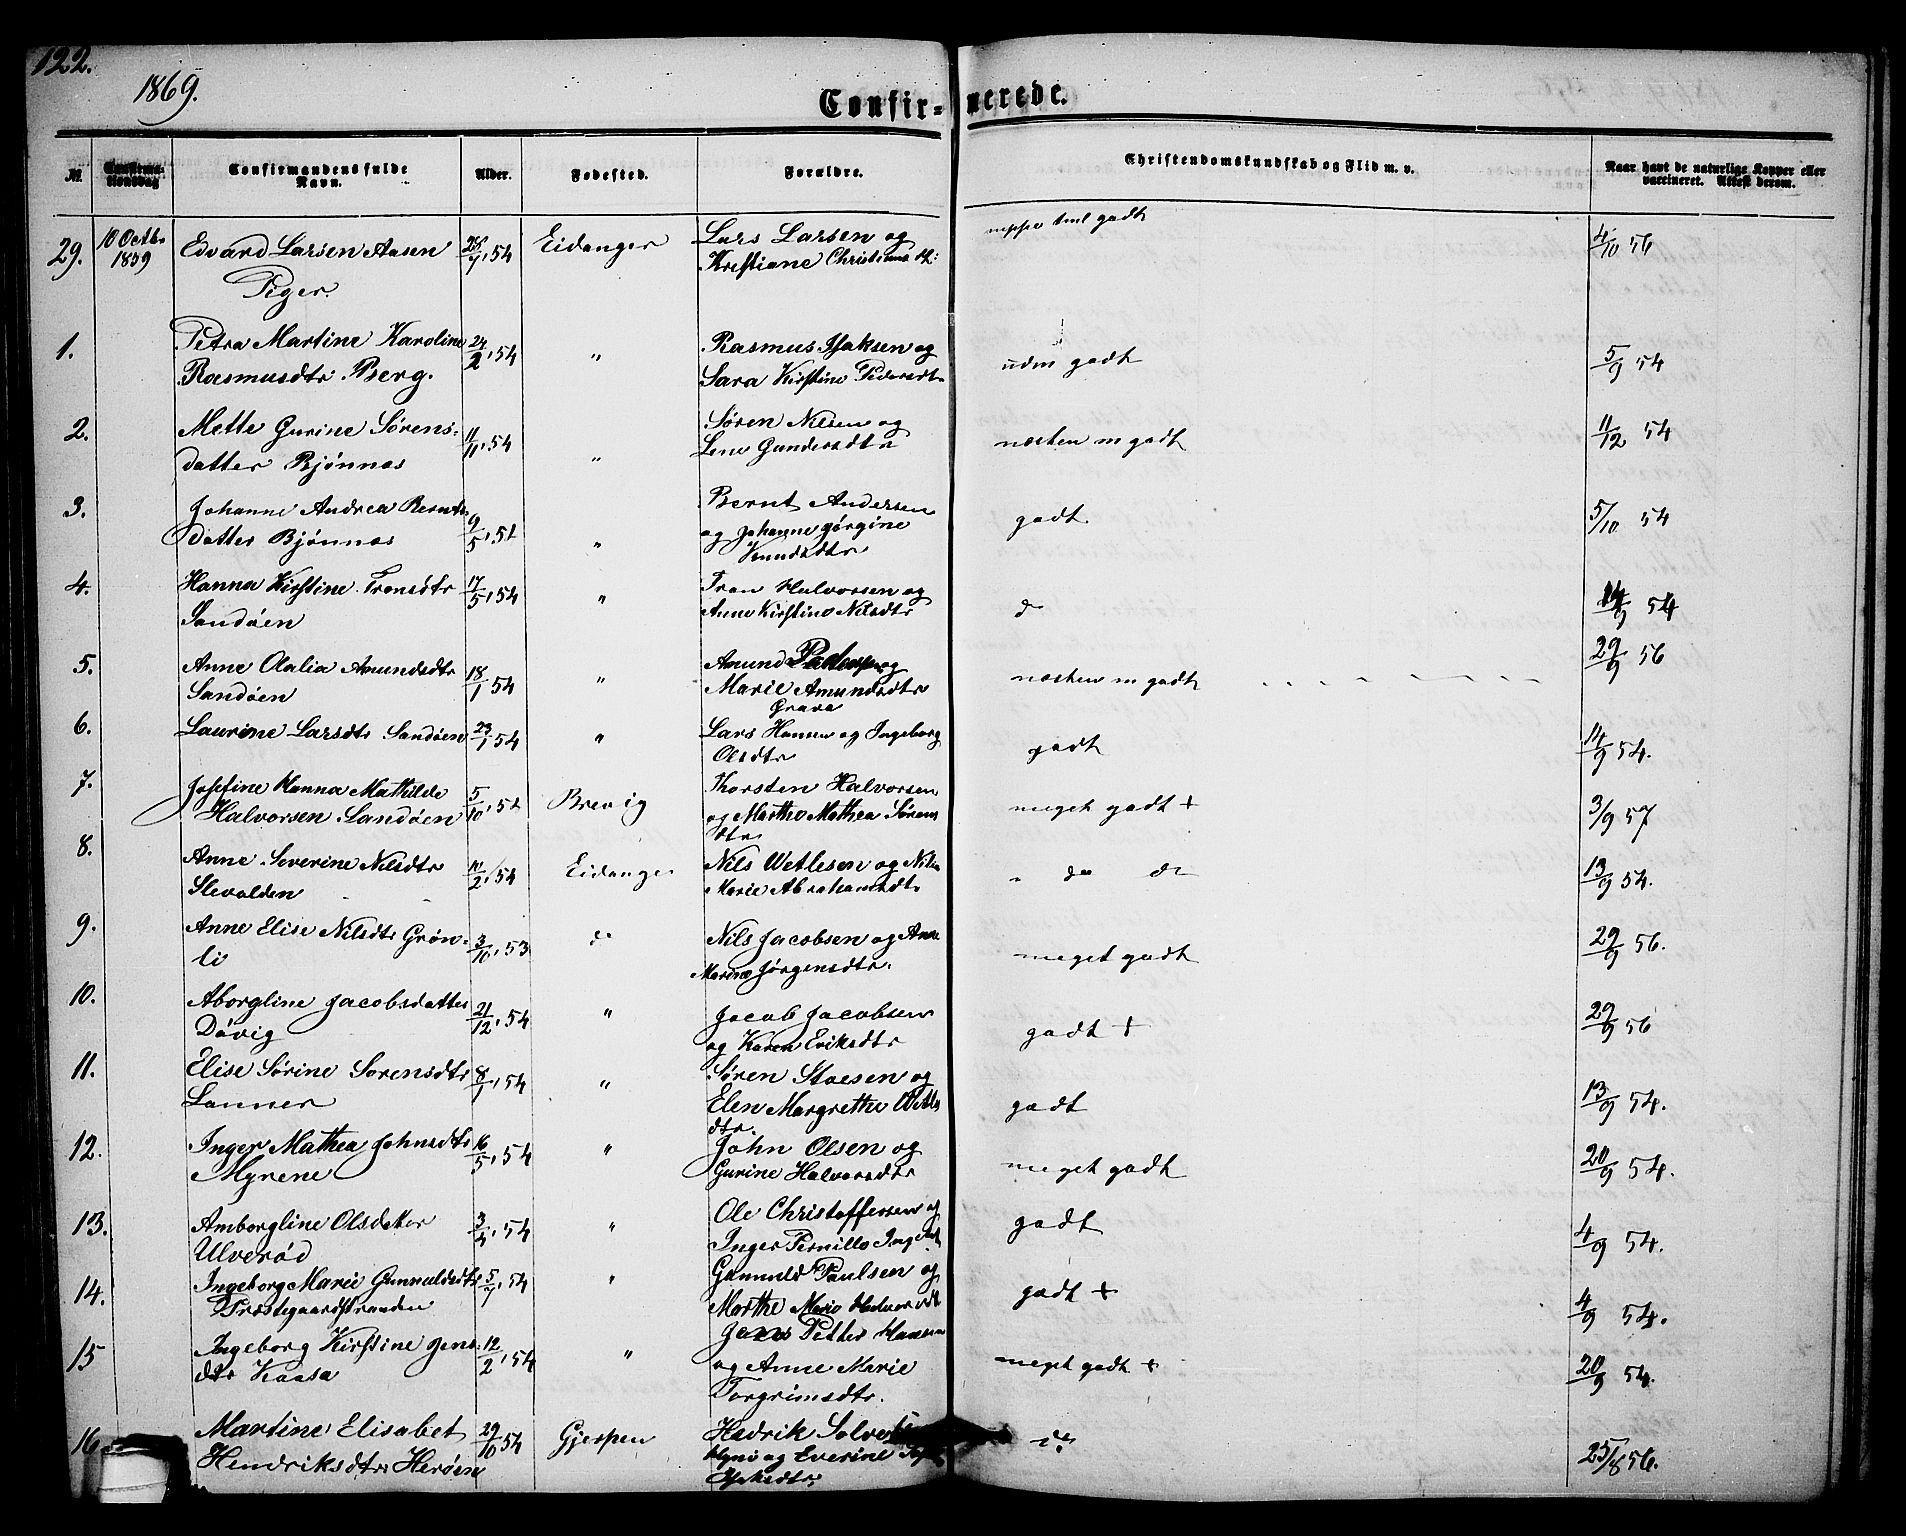 122.
1869.
Confir= nerede.
№
Confirma-
tionsdag
Confirmandens fulde
Navn.
Alder.
Fødested.
Forældre.
Christendomskundskab og Flid m. v.
Naar havt de naturlige Kopper eller
vaccineret. Attest derom.
29. 10 Octbr 1869 Edvard Larsen Aasen 54 Eidanger Lars Larsen og Kristiane neppe tml godt 4/10 56
Piger.
1. Petra Martine Karoline Rasmusdtr Berg. 24/2, 54 " Rasmus Isaksen og Sara Kirstine Pedersdtr udm godt 5/9 54
2. Mette Gurine Sørens-
datter Bjønnes 11/11, 54 " Søren Nilsen og Lene Gundersdtr næsten m godt 11/12 54
3. Johanne Andrea Berntsdatter Bjønnes 9/5, 54 " Bernt Andersen og Johanne Jørgine Knudsdtr godt. 5/10 54
4. Hanna Kirstine Tronsdtr Sandøen 17/5, 54 " Tron Halvorsen og Anne Kirstine Nilsdtr d 54
5. Anne Olalia Amundsdtr Sandøen 18/1 54 " Amund Pedersen og Marie Amundsdtr Grava næsten m godt 29/9 56
6. Laurine Larsdtr Sandøen 23/1 54 " Lars Hansen og Ingeborg Olsdtr godt 14/9 54.
7. Josefine Hanna Mathilde Halvorsen Sandøen 5/10, 54 Brevig Thorsten Halvorsen og Marthe Mathea Sørensdtr meget godt + 3/9 57
8. Anne Severine Nilsdtr Slevolden 11/2, 54 Eidanger Nils Wetlesen og Nilia Marie Abrahamsdtr " do do 13/9 54.
9. Anne Elise Nilsdtr Grøn-
li 3/10, 53 d Nils Jacobsen og Anne Marine Jørgensdtr. meget godt 29/9 56.
10. Aborgline Jacobsdatter Døvig 21/12, 54 " Jacob Jacobsen og Karen Eriksdtr godt + 29/9 56
11. Elise Sørine Sørensdtr Lanner 8/1, 54 " Søren Staesen og Elen Margrethe Wetlesdtr. godt 13/9 54.
12. Inger Mathea Johnsdtr Myrene 16/5, 54 " John Olsen og Gurine Halvorsdtr meget godt 20/9 54.
13. Amborgline Olsdatter Ulverød 54 " Ole Christoffersen og Inger Pernille godt 4/9 54.
14. Ingeborg Marie Gunnuldsdtr Præstegaardstranden 5/7, 54 " Gunnuld Paulsen og Marthe Marie Halvorsdtr godt + 4/9 54.
15 Ingeborg Kirstine Jens-
dtr Kaasa 12/2, 54 " Jens Petter Hansen og Anne Marie Torgrimsdtr. meget godt + 20/9 54.
16 Martine Elisabet Hendriksdtr Herøen 29/10 54 Gjerpen Hedrik og Everine Isaksdtr. 25/8 56.